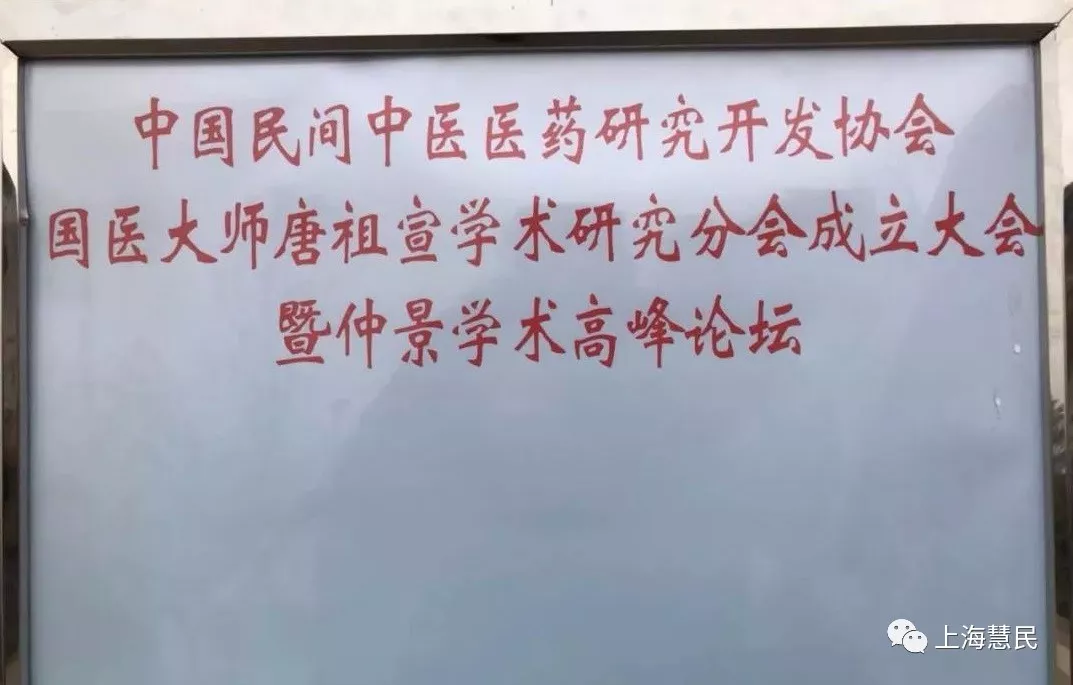 中国民间中医医药研究开发协会
国医大师唐祖宣学术研究分会成立大会
暨仲景学术高峰论坛
上海慧民